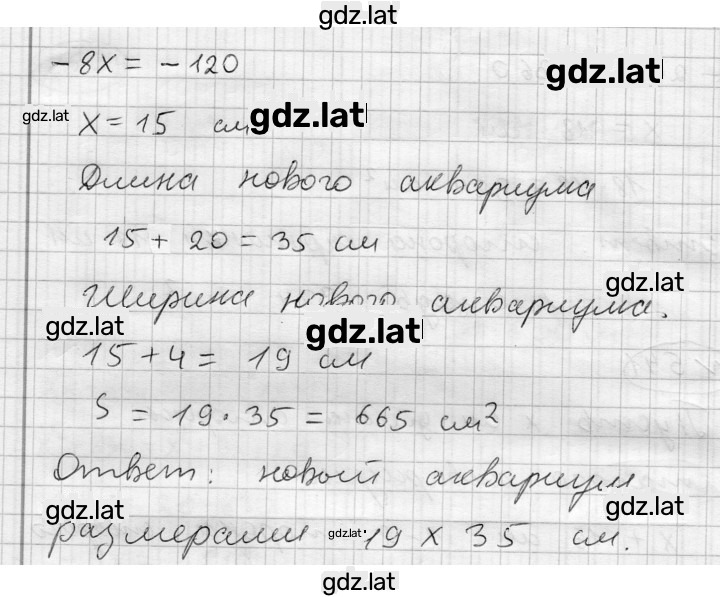 gdz.lat
-8x = -120
gdz.lat
gdz.lat
x = 15 см
gdz.lat
Длина нового аквариума
15 + 20 = 35 см
gdz.lat
Ширина нового аквариума.
gdz.lat
gdz.lat
15 + 4 = 19 см
S = 19 · 35 = 665 см²
Ответ: новый аквариум
gdz.lat
gdz.lat
размерами 19 x 35 см.
gdz.lat
gdz.lat